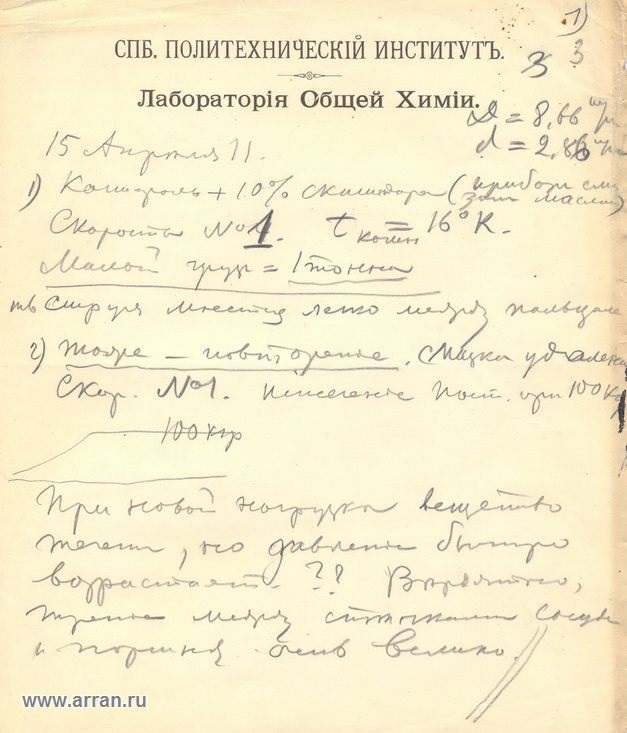 1)
3
3
СПБ. ПОЛИТЕХНИЧЕСКІЙ ИНСТИТУТЪ.
Лабораторія Общей Химіи.
= 8,66
d = 2,86
15 Апреля 11.
1) Контроль + 10% скипидара (прибор
маслом)
Скорость №1. t комн = 16° К.
Малый груз = 1 тонна
легко между пальцами
2) Тоже – повторение. Смазка удалена
Скор. №1. пост. при 100 кгр
100 кгр
При новой нагрузке вещество
течет, но давление быстро
возрастает. ?? Вероятно,
трение между стенками сосуда
и поршня очень велико.
www.arran.ru